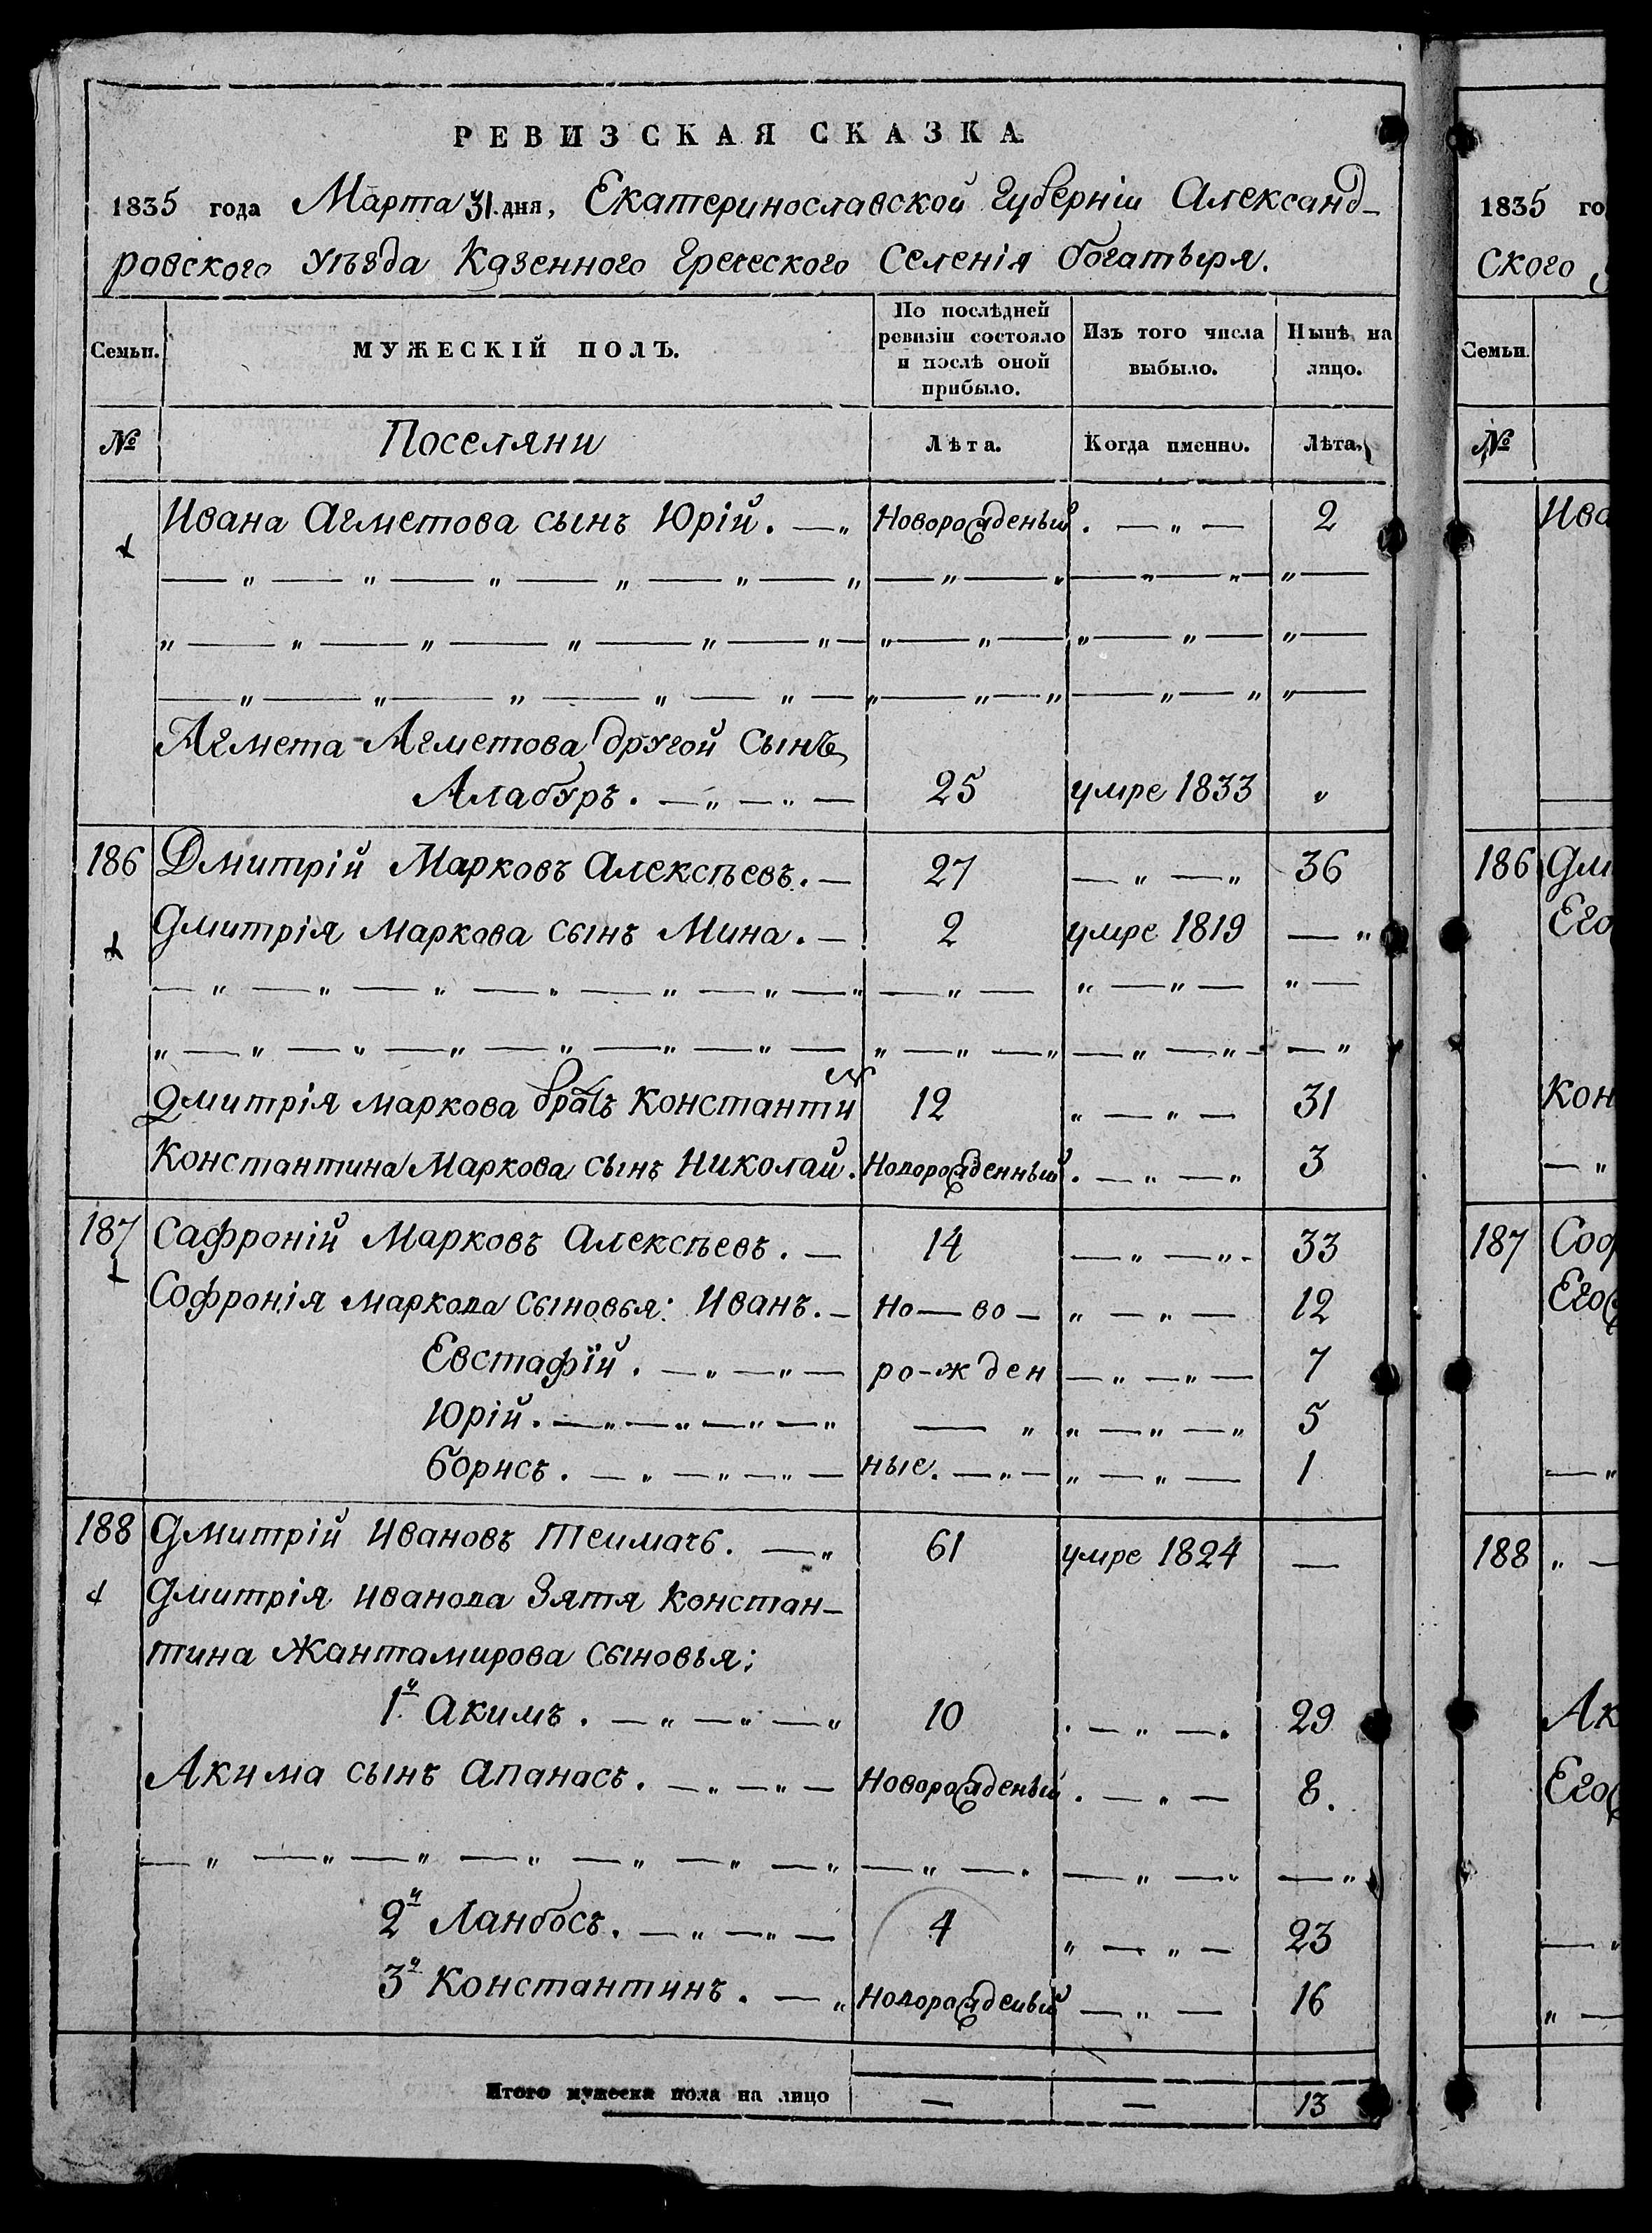 РЕВИЗСКАЯ СКАЗКА
1835 года Марта 31 дня, Екатеринославской Губерніи Александ-
ровского уѣзда Казенного Греческого Селенія богатыря.
Семьи. МУЖЕСКІЙ ПОЛЪ. По послѣдней ревизіи состояло и послѣ оной прибыло. Изъ того числа выбыло. Нынѣ на лицо.
№ Поселяни Лѣта. Когда именно. Лѣта.
Ивана Агметова сынъ Юрій. — „ Новорожденый. — „ — 2
Агмета Агметова другой Сынъ
Алабуръ. — „ — „ — 25 умре 1833 „
186 Дмитрій Марковъ Алексѣевъ. — 27 — „ — „ 36
Дмитрія Маркова сынъ Мина. — 2 умре 1819 — „
Дмитрія Маркова братъ Константин 12 „ — „ — 31
Константина Маркова сынъ Николай. Новорожденный. — „ — „ 3
187 Сафроній Марковъ Алексѣевъ. — 14 — „ — „ - 33
Софронія Маркова Сыновья: Иванъ. — Но — во — „ — „ — 12
Евстафій. — „ — „ — ро-жден — „ — „ — 7
Юрій. — „ — „ — „ — „ — „ „ — „ — „ 5
Борисъ. — „ — „ — „ — ные. — „ — „ — „ — 1
188 Дмитрій Ивановъ Теимачъ. — „ 61 умре 1824 —
Дмитрія Иванова Зятя Констан-
тина Жантамирова Сыновья:
1й Акимъ. — „ — „ — „ 10 . — „ — „ 29
Акима сынъ Апанасъ. — „ — „ — Новорожденый. — „ — 8.
2й Ланбосъ. — „ — „ — 4 „ — „ — 23
3й Константинъ. — „ Новорожденый — „ — 16
Итого мужеска пола на лицо — — 13
1835 го
ского
Семьи.
№
Ива
186 Дми
Его
Кон
187 Соф
Его
188 „ —
Ак
Его